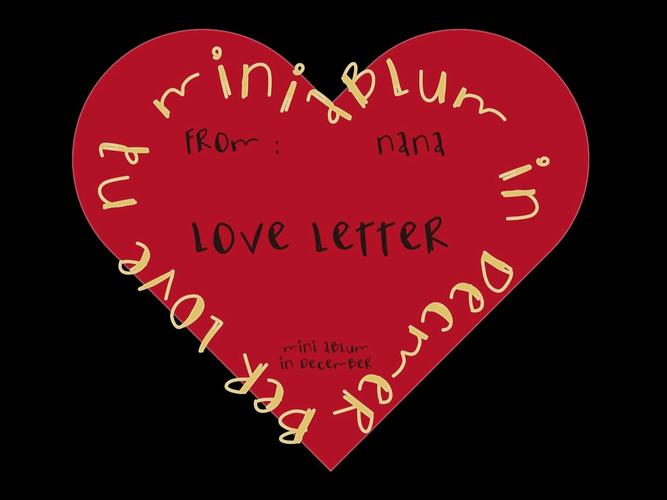 mini aBLum in DecmeR BeR LOVe na
FROm : nana
LOVe LeTTeR
mini aBLum
in DecemBeR